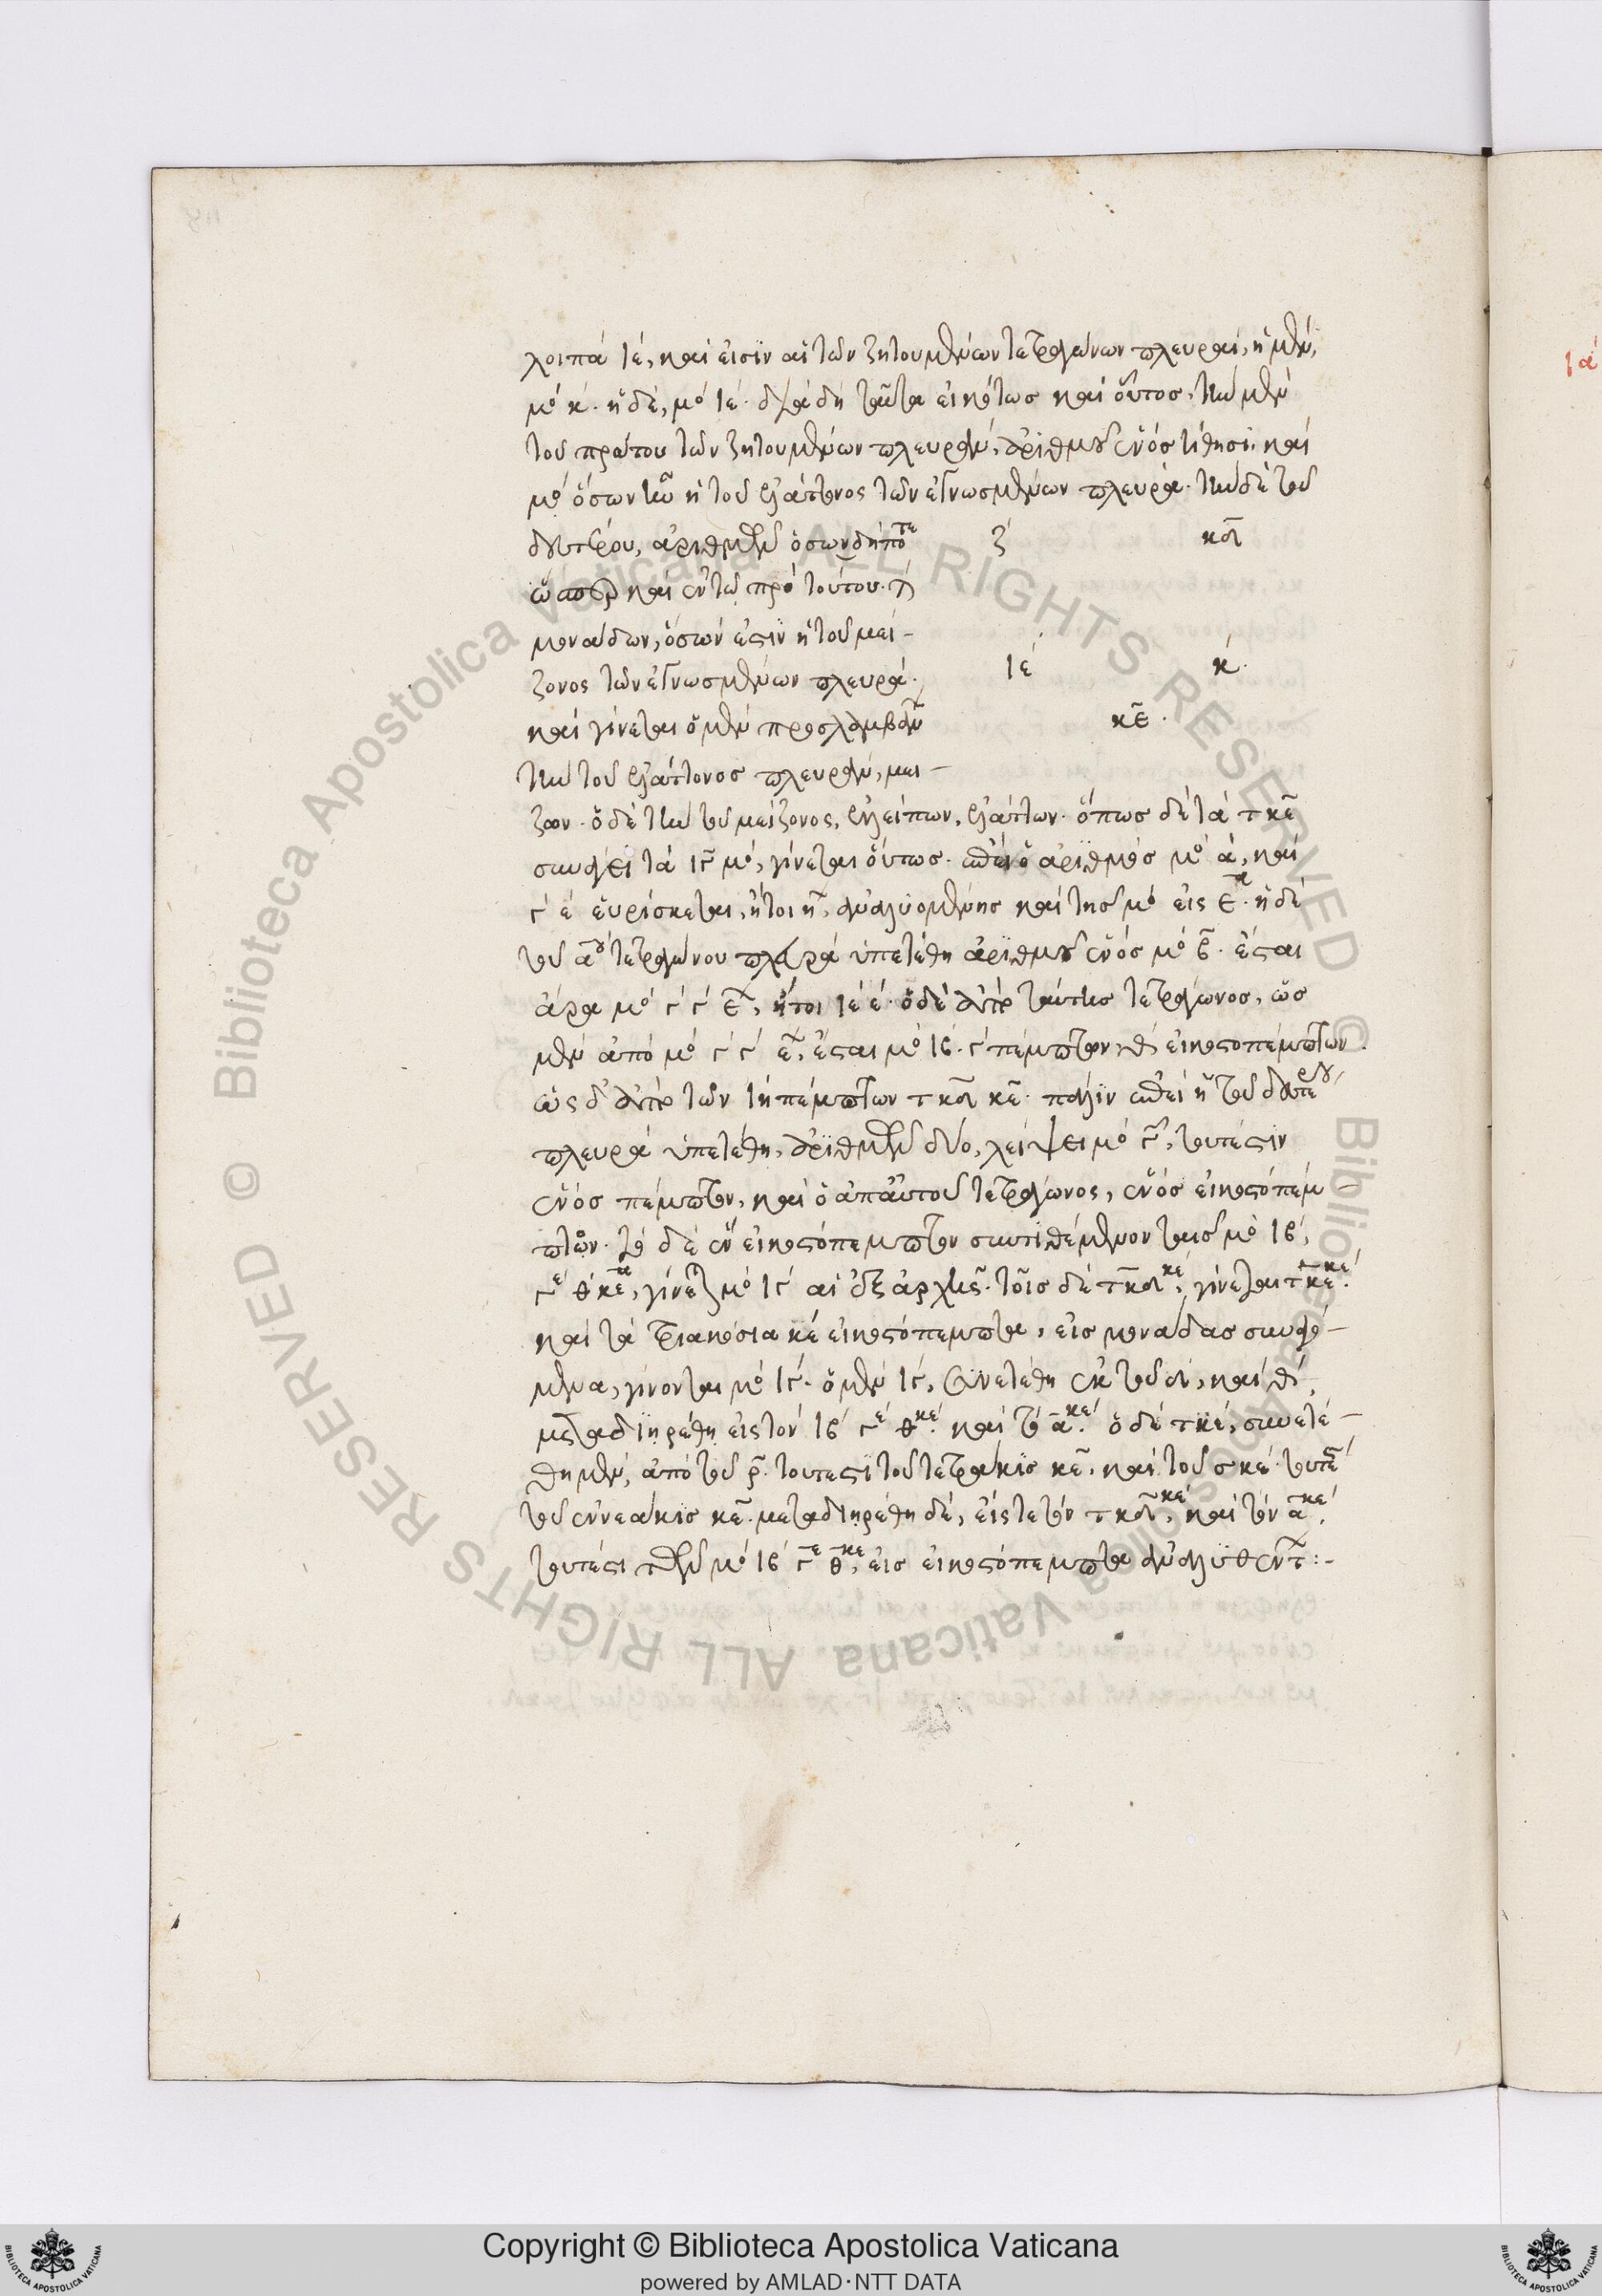 λοιπά ιέ, καί εἰσὶν αἱ τῶν ζητουμένων τετραγώνων πλευραί, ἡ μέν,
μο κ. ἡ δέ, μο ιέ. διὰ δὴ ταῦτα εἰκότως καὶ οὗτος, τὴν μὲν
τοῦ πρώτου τῶν ζητουμένων πλευράν, ἀριθμοῦ ἑνός τίθησι, καὶ
μο ὅσων ἦν ἡ τοῦ ἐλάττονος τῶν ἐγνωσμένων πλευρά. τὴν δὲ τοῦ
δευτέρου, ἀριθμῶν ὁσωνδήποτε
ὥσπερ καὶ ἐν τῷ πρὸ τούτου.
μονάδων, ὅσων ἐστὶν ἡ τοῦ μεί-
ζονος τῶν ἐγνωσμένων πλευρά.
καὶ γίνεται ὁ μὲν προσλαμβάνων
τὴν τοῦ ἐλάττονος πλευράν, μεί-
ζων. ὁ δὲ τὴν τοῦ μείζονος, ἐλλείπων, ἐλάττων. ὅπως δὲ τὰ τκε
συνάγει τὰ ιγ μο, γίνεται οὕτως. ἐπεὶ ὁ ἀριθμὸς μο ά, καὶ
γ έ εὑρίσκεται, ἤτοι η, ἀναλυομένης καὶ τῆς μο εἰς ε. ἡ δὲ
τοῦ αου τετραγώνου πλευρά ὑπετέθη ἀριθμοῦ ἑνός μο β. ἔσται
ἄρα μο γ γ ε, ἤτοι ιέ έ. ὁ δὲ ἀπὸ ταύτης τετράγωνος, ὡς
μὲν ἀπό μο γ γ ε, ἔσται μο ιβ. γ πέμπτων, θ εἰκοστοπέμπτων.
ὡς δ' ἀπὸ τῶν ιη πέμπτων τκδ κε. πάλιν ἐπεὶ ἡ τοῦ δευτέρου
πλευρά ὑπετέθη, ἀριθμῶν δύο, λείψει μο γ, τουτέστιν
ἑνός πέμπτου, καὶ ὁ ἀπ' αὐτοῦ τετράγωνος, ἑνός εἰκοστοπέμ-
πτου. τὸ δὲ ἓν εἰκοστόπεμπτον συντιθέμενον ταῖς μο ιβ,
γ ε θ κε, γίνεται μο ιγ αἱ ἐξ ἀρχῆς. τοῖς δὲ τκδ κε, γίνεται τκε κε.
καὶ τὰ τριακόσια κέ εἰκοστόπεμπτα, εἰς μονάδας συναγό-
μενα, γίνονται μο ιγ. ὁ μὲν ιγ, συνετέθη ἐκ τοῦ δ, καὶ θ,
μεταδιῃρέθη εἰς τόν ιβ γ ε θ κε. καὶ τό α κε. ὁ δέ τκέ, συνετέ-
θη μέν, ἀπό τοῦ ρ. τουτέστι τοῦ τετράκις κε, καὶ τοῦ σκέ. τουτέστι
τοῦ ἐννεάκις κε. μεταδιῃρέθη δέ, εἴς τε τόν τκδ κε, καὶ τόν α κε.
τουτέστι τῶν μο ιβ γ ε θ κε, εἰς εἰκοστόπεμπτα ἀναλυθέντ :-
ξ κδ
ιέ κ.
κε.
ια
Copyright © Biblioteca Apostolica Vaticana
powered by AMLAD·NTT DATA
Biblioteca Apostolica Vaticana ALL RIGHTS RESERVED ©